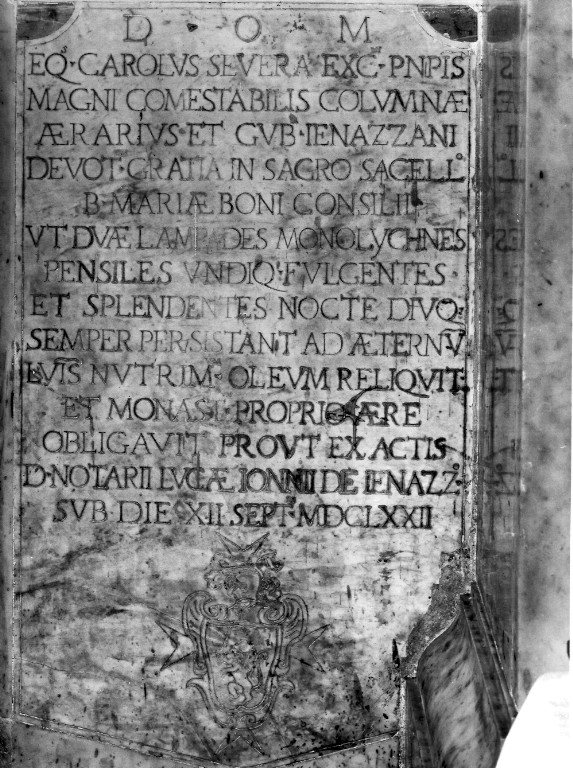 D O M
EQ·CAROLVS SEVERA EXC·PNPIS
MAGNI COMESTABILIS COLVMNÆ
ÆRARIVS·ET GVB·IENAZZANI
DEVOT·GRATIA IN SACRO SACELLº
B·MARIÆ BONI CONSILII
VT DVÆ LAMPADES MONOLYCHNES
PENSILES VNDIQ·FVLGENTES
ET SPLENDENTES NOCTE DIVQ·
SEMPER PERSISTANT AD ÆTERNV̄
LVĪS NVTRIM· OLEVM RELIQVIT
ET MONAST·PROPRIO ÆRE
OBLIGAVIT PROVT EX ACTIS
D·NOTARII LVCÆ IONNII DE IENAZZº
SVB·DIE XII SEPT·MDCLXXII